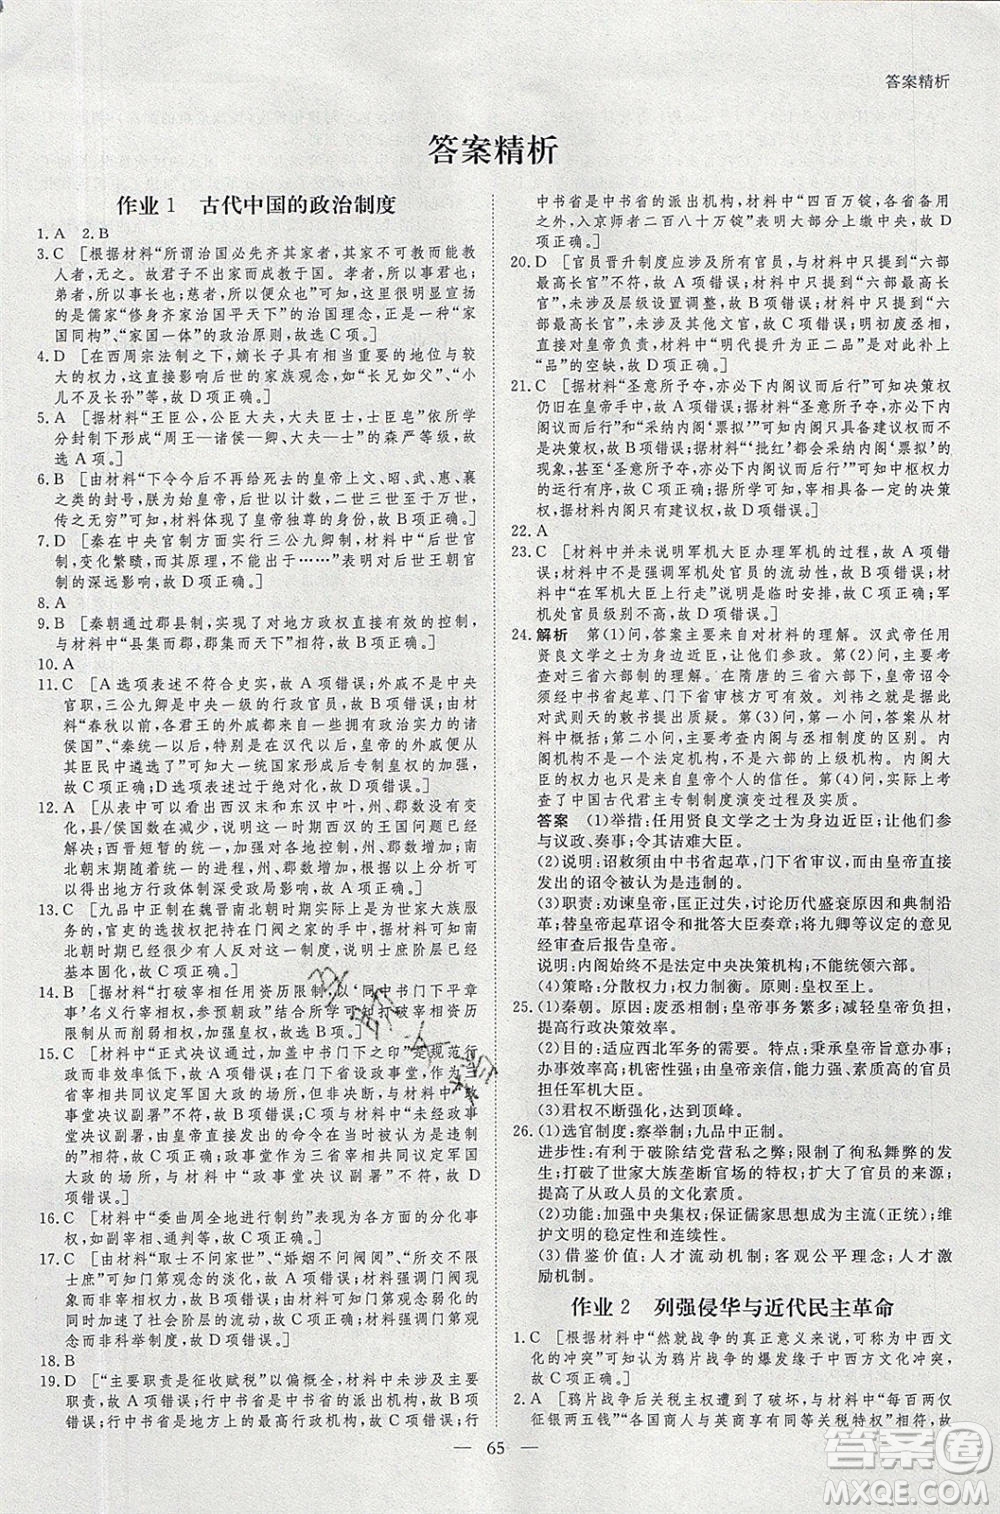 答案精析
答案精析
作业1 古代中国的政治制度
1. A 2. B
3. C [根据材料“所谓治国必先齐其家者，其家不可教而能教
人者，无之。故君子不出家而成教于国。孝者，所以事君也；
弟者，所以事长也；慈者，所以使众也”可知，上述思想宣扬
的是儒家“修身齐家治国平天下”的治国理念，正是一种“家
国同构”、“家国一体”的政治原则，故选C项。]
4. D [在西周宗法制之下，嫡长子具有相当重要的地位与较
大的权力，这种制度影响了后世的家族观念，如“长兄如父”、“小
儿不及长孙”等，故D项正确。]
5. A [据材料“王臣公，公臣大夫，大夫臣士，士臣皂”依所学
分封制下形成了“周王—诸侯—卿大夫—士”的森严等级，故
选A项。]
6. B [由材料“下令今后臣民不得给死去的皇帝上文、昭、武、惠、襄
之类的封号，朕为始皇帝，后世以计数，二世三世至于万世，
传之无穷”可知，材料体现了皇帝独尊的身份，故B项正确。]
7. D [秦在中央官制方面实行三公九卿制，由材料“后世官
制，变化繁赜，而要不出于……”表明对后世王朝官制
的深远影响，故D项正确。]
8. A
9. B [秦朝通过郡县制，实现了对地方政权直接有效的控制，
与材料中“县集而郡，郡集而天下”相符，故B项正确。]
10. A
11. C [A选项表述不符合史实，故A项错误；外戚不是中央
官职，三公九卿是中央一级的行政官员，故B项错误；由
材料“春秋以前，各君王的外戚都是拥有政治实力的诸
侯国”、“秦统一以后，特别是在汉代以后，皇帝的外戚不过是
其臣民”凸显出大一统带来后皇帝专制皇权的加强，
故C项正确；D选项表述过于绝对，故D项错误。]
12. A [从表中可以看出，西汉末和东汉中叶，州、郡数有变
化，县/侯国数在减少，说明这一时期西汉的王国问题得到
解决；西晋短暂的统一，对各地控制加强，故州数增加；南
北朝时期随着统一的进行，州、郡数增加，根据以上分析可
以得出地方行政体制深受政局影响，故A项正确。]
13. C [九品中正制在魏晋南北朝时期实际上是为世家大族服
务，官吏的选拔权把持在门阀之家的手中，据材料可知，南
北朝时期已经少有人反对这一制度，说明士庶阶层已
基本固化，故C项正确。]
14. B [据材料“打破宰相任用资历限制，以‘同中书门下平章
事’名义行宰相职权，参预朝政”结合所学可知打破宰相资历
限制，实际上加强皇权，故B项正确。]
15. C [材料中“正式决议通过，加盖中书门下之印”是规范行
政，而不是效率，故A项错误；在门下省设政事堂，作为三
省宰相共同议定军国大政的场所，与材料中“未经政
事堂决议副署”不符，故B项错误；材料中“未经政事
堂决议副署，由皇帝直接发出的命令在当时被认为是违制
的”相符，故C项正确；政事堂是三省宰相共同议定军国
大政的场所，与材料中“政事堂决议副署”不符，故D
项错误。]
16. C [材料中“委曲周全地进行制约”表现为多样的分化事权，
如参知政事、通判等，故C项正确。]
17. C [由材料“取士不问家世”、“婚姻不问阀阅”、“所交不限
士庶”可知门第观念的淡化，故A项错误；材料强调门阀现象
的变化，而非宰相权力，故B项错误；材料中门第观念的变
化有利于社会阶层的流动，故C项正确；材料强调门第观念
而非科举制度，故D项错误。]
18. B
19. D [“主要职责是征收赋税”以偏概全，征收赋税只是其主要
职责，故A项错误；行中书省是中书省的派出机构，故B项
错误；行中书省是地方的最高行政机构，故C项错误；行
中书省是中书省的派出机构，材料中“四百万锭，各省备用
之外，入京师者二百八十万锭”表明大部分上缴中央，故D
项正确。]
20. D [官员晋升制度应涉及所有官员，与材料中“六部
最高长官”不符，故A项错误；材料中只涉及“六部最高长
官”，未涉及层级设置调整，故B项错误；材料中只涉及“六
部最高长官”，未涉及其他文官，故C项错误；明初废丞相，六部
直接对皇帝负责，材料中“明代提升为正二品”是对此补上
“品”的空缺，故D项正确。]
21. C [根据材料“圣意所予夺，亦必下内阁议而后行”可知决策权
仍旧在皇帝手中，故A项错误；材料中“圣意所予夺，亦必下
内阁议而后行”和“采纳内阁‘票拟’”可知内阁有建议权而不是
决策权，故B项错误；材料中“‘批红’都会采纳内阁‘票拟’”的
现象，结合“圣意所予夺，亦必下内阁议而后行”可知中枢权力
的运作制度化，故C项正确；根据所学可知，皇帝有最终的决策
权，材料中内阁只有建议权，故D项错误。]
22. A
23. C [材料中并未说明军机大臣办理军机的过程，故A项错
误；材料中不是强调军机处官员的流动性，故B项错误；据
材料中“在军机大臣上行走”说明是临时安排，故C项正确；
军机处官员级别不高，故D项错误。]
24. 解析 第(1)问，答案主要来自对材料的理解。汉武帝任用
贤良文学之士为皇帝近臣，让他们参政。第(2)问，答案主要
是对三省六部制的理解。在隋唐的三省六部制度下，皇帝诏令
须经中书省和门下省审核方可有效。刘祎之就是以此
对武则天的诏令提出质疑。第(3)问，第一小问，答案从材
料中概括；第二小问，主要考查内阁与丞相的区别。内
阁机构不是法定一级行政机构，不是六部的上级机构，内阁
大臣的升迁取决于皇帝个人的信任。第(4)问，实际上考
查了中国古代君主专制制度演变过程及实质。
答案 (1)举措：任用贤良文学之士为身边近臣，让他们参
与议政、奏事；令其诘难大臣。
(2)说明：诏敕须由中书省起草，门下省审议，而由皇帝直接
发出的诏令就是违制的。
(3)职责：劝谏皇帝，匡正过失；讨论历代盛衰及制度沿
革；替皇帝起草诏令和批答大臣奏章；将九卿议定的意见
经审查后报告皇帝。
说明：内阁始终不是法定中央决策机构；内阁没有决策权。
(4)策略：分散权力；权力制衡。原则：皇权至上。
25. (1)秦朝。原因：废丞相；皇帝事务繁多；减轻皇帝负担，
提高行政决策效率。
(2)目的：适应西北军务的需要。特点：秉承皇帝旨意办事；
办事效率高；机密性强；由皇帝亲信，尤其是满族官员
担任军机大臣。
(3)君权不断强化，达到顶峰。
26. (1)选官制度：察举制；九品中正制。
进步性：有利于破除结党营私之弊；防止了徇私舞弊的发
生；打破了世家大族垄断官场的特权；扩大了官员的来源；
提高了从政人员的文化素质。
(2)功能：加强中央集权；保证儒家思想成为主流(正统)；
维护文明的稳定性和连续性。
(3)借鉴价值：人才流动机制；客观公平理念；人才激
励机制。
作业2 列强侵华与近代民主革命
1. C [根据材料中“然就战争的真正意义来说，可称为中西文
化的冲突”可知认为鸦片战争的爆发缘于中西方文化冲突。]
2. A [鸦片战争后关税主权遭到了破坏，与材料中“每百两仅
征银五两”“各国商人与英商享有同等关税特权”相符，故
— 65 —
答案卷
MXQE.COM